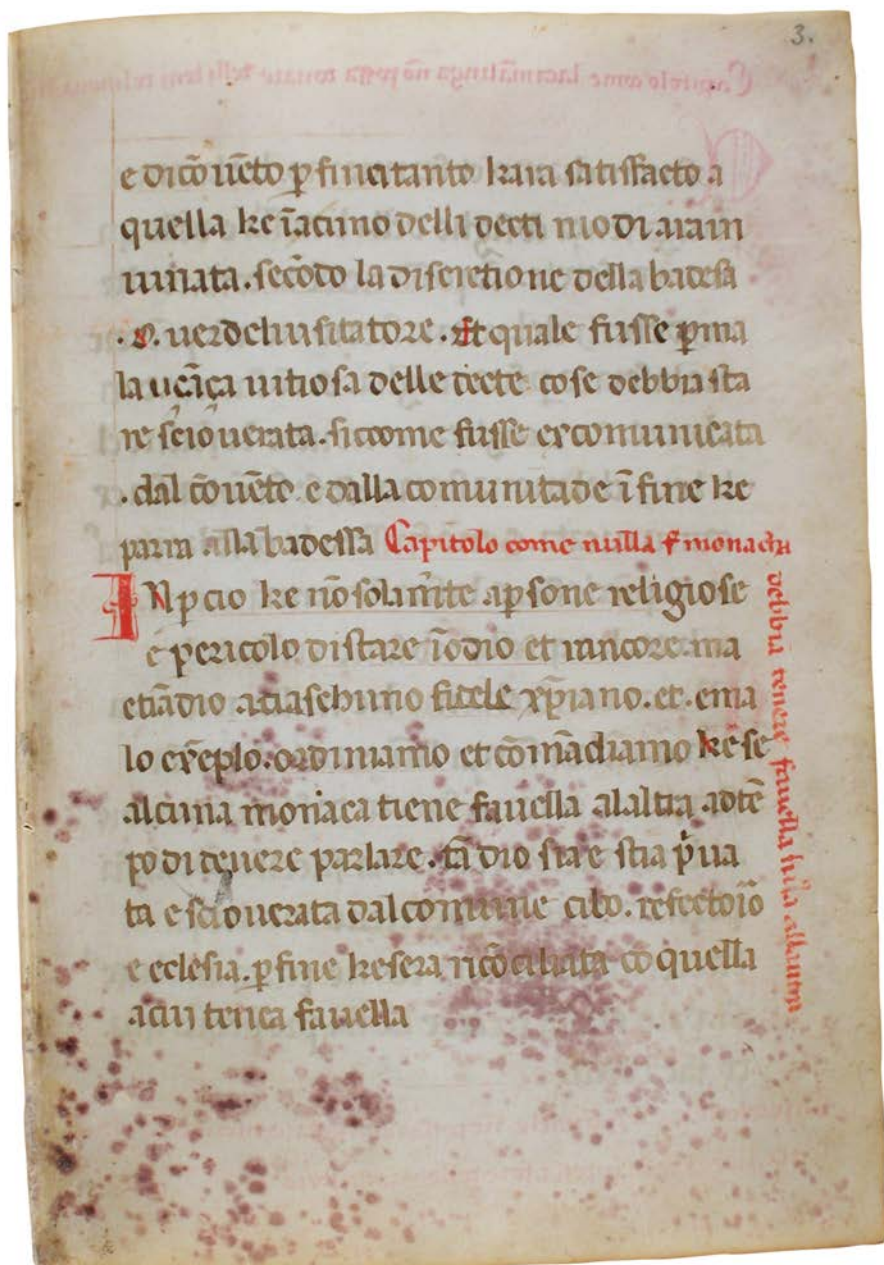 3.
e dicō uēto ꝑ fine itanto kaia satisfacto a
quella ke īacuno delli decti modi aia in
iuriata. secōdo la discretione della badesa
.o. uer del uisitatore. Et quale fusse ꝑ ma
la usāça uitiosa delle decte cose debbia sta
re sciouerata. siccome fusse excomunicata
.dal cōuēto. e dalla comunitade ī fine ke
parra alla badessa Capitolo come nulla monacha
debbia tenere fauella luna allautra
INꝑcio ke nō solamīte a ꝑsone religiose
e pericolo di stare īodio et rancore. ma
etiādio a ciaschuno fidele xp̄iano. et. e ma
lo exēplo. ordiniamo et cōmādiamo ke se
alcuna monaca tiene fauella alaltra adtē
po di tenere parlare. tādio stae stia p̄ua
ta e sciouerata dal comune cibo. refectoīo
e eclesia. ꝑ fine ke sera ricōciliata cō quella
acui tenea fauella